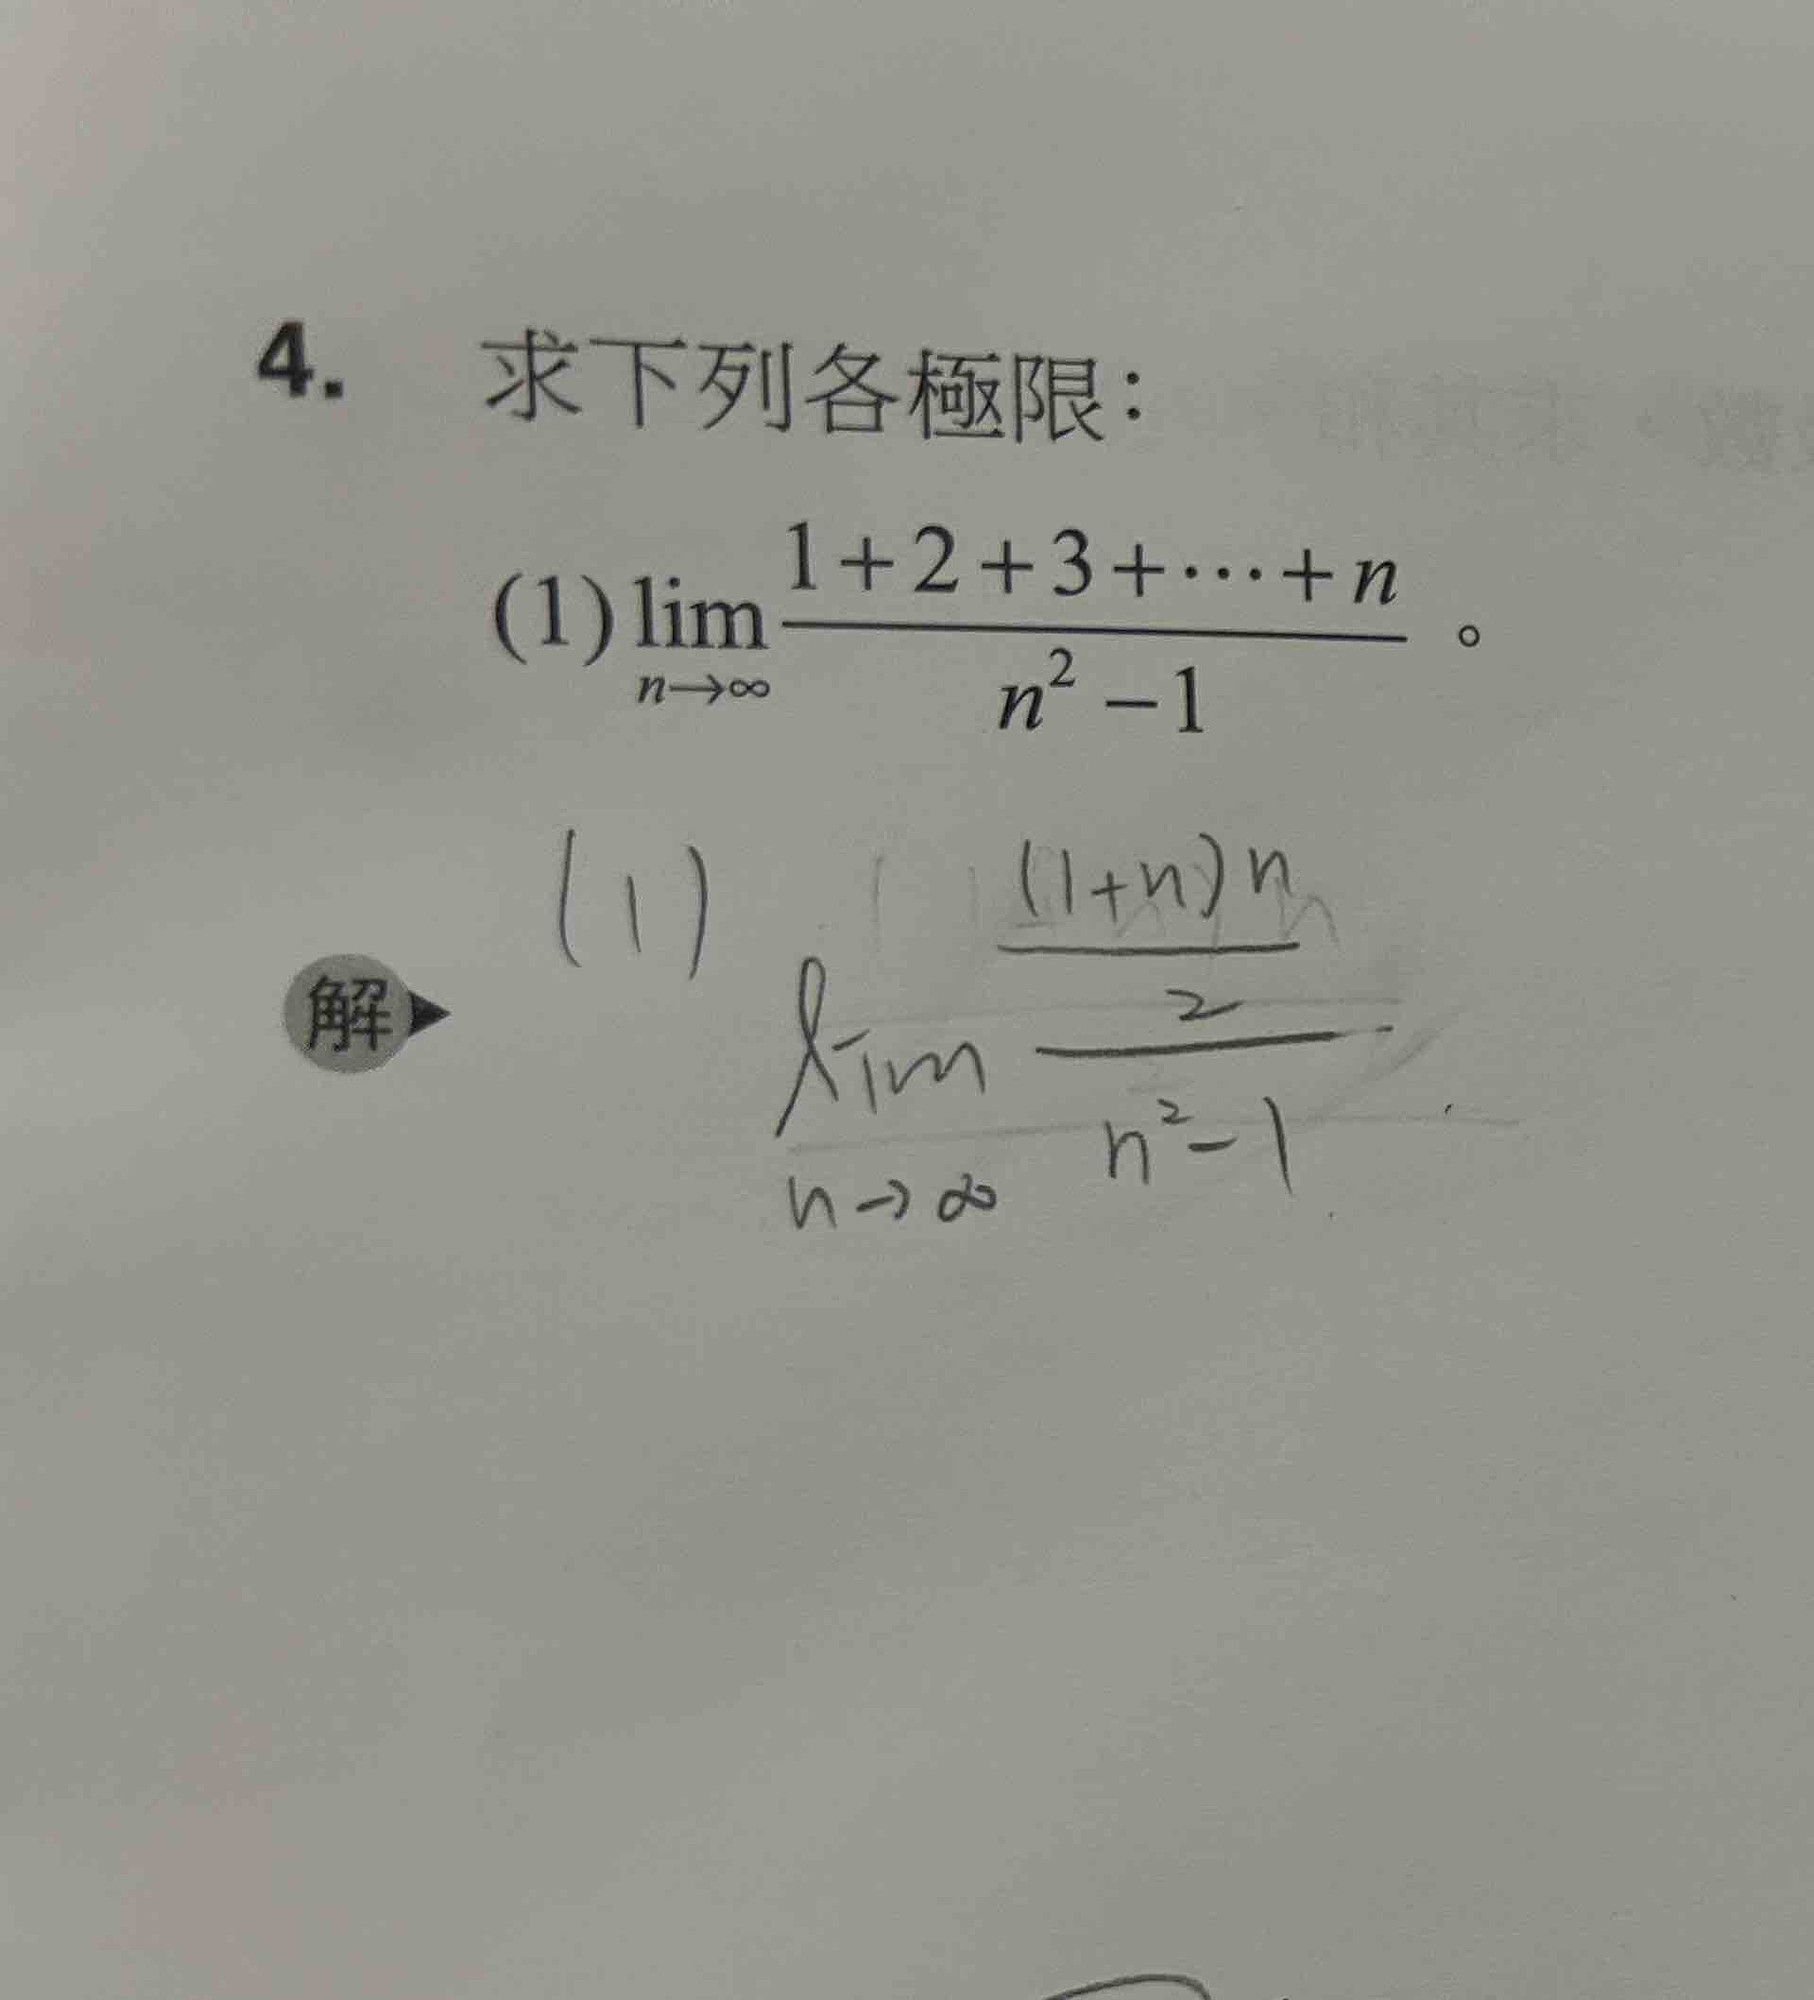 4. 求下列各極限：
(1) lim_{n→∞} \frac{1+2+3+⋯+n}{n²-1}。
解
(1) lim_{n→∞} \frac{\frac{(1+n)n}{2}}{n²-1}